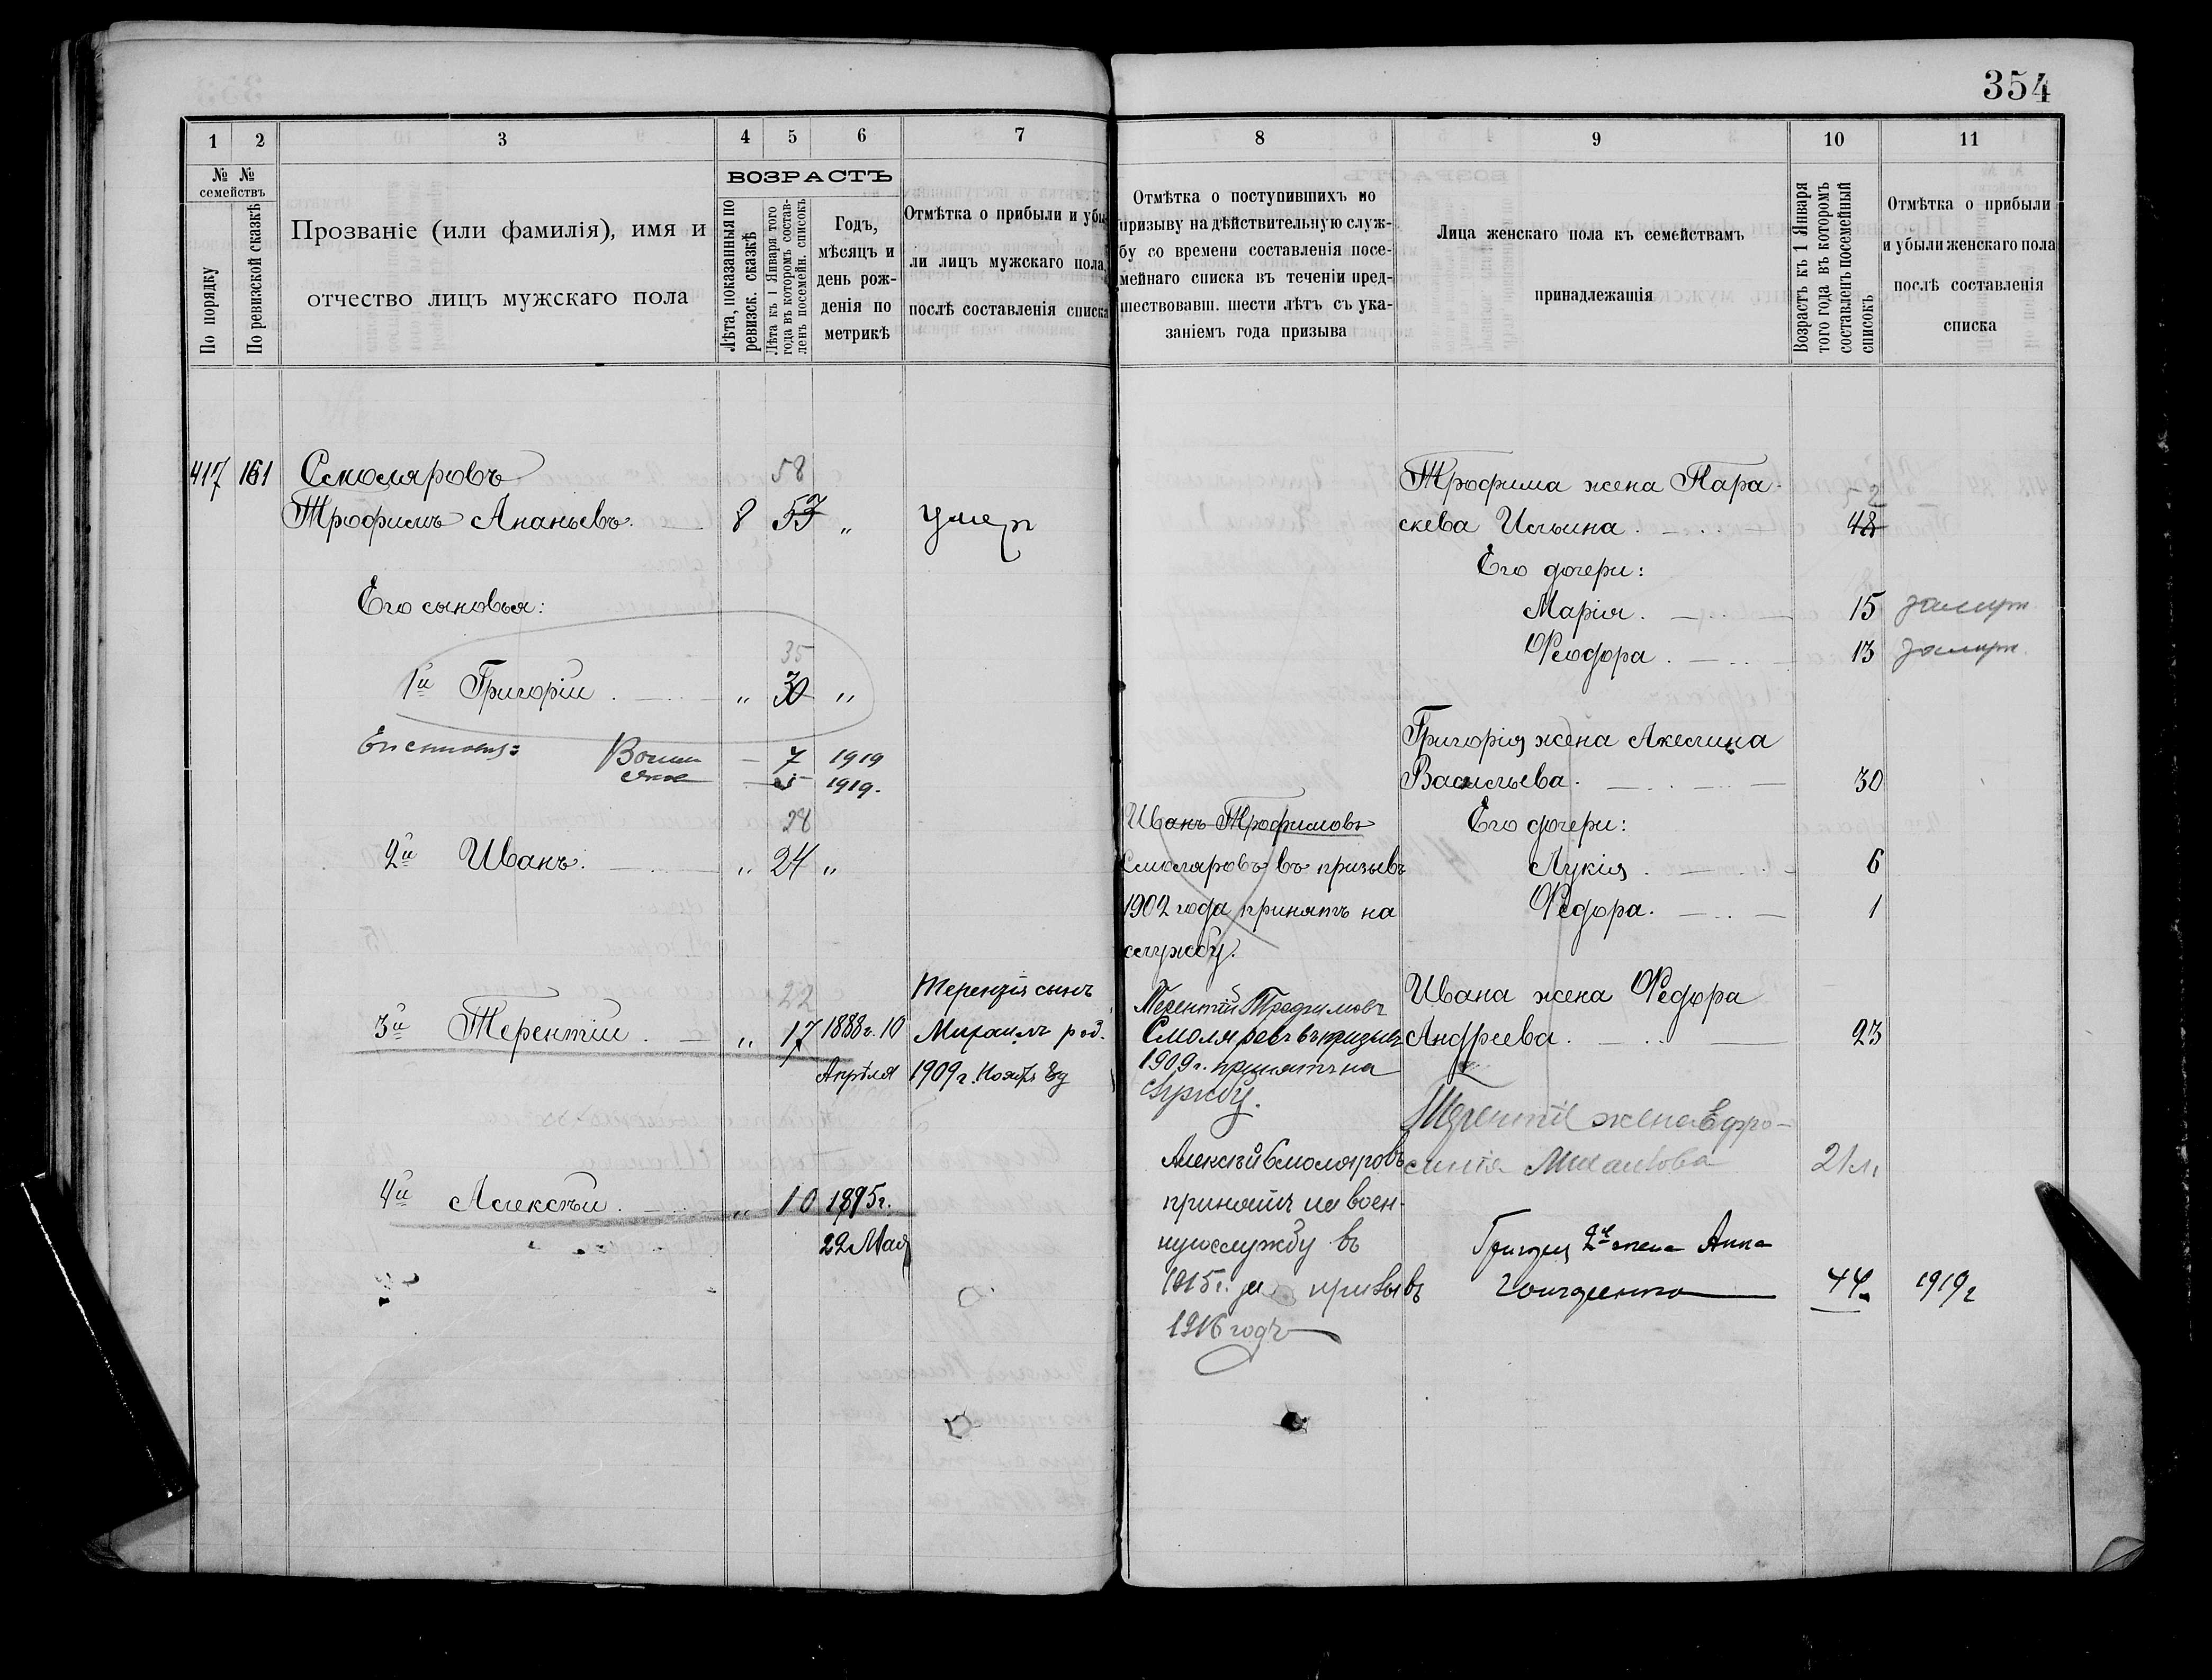 354
1 2 3 4 5 6 7
№ № семействъ
По порядку
По ревизской сказкѣ
Прозваніе (или фамилія), имя и
отчество лицъ мужскаго пола
ВОЗРАСТЪ
Лѣта, показанныя по
ревизск. сказкѣ
Лѣта къ 1 Января того
года въ которомъ состав-
ленъ посемейн. списокъ
Годъ,
мѣсяцъ и
день рож-
денія по
метрикѣ
Отмѣтка о прибыли и убы
ли лицъ мужскаго пола,
послѣ составленія списка
417 161 Смоляровъ 58
Трофимъ Ананьевъ. 8 53 „ умер
Его сыновья:
35
1й Григорій . „ 30 „
7 1919
1919.
28
2й Иванъ. „ 24 „
22 Терентія сынъ
3й Терентій . „ 17 1888г. 10 Михаилъ род.
Апрѣля 1909 г. Ноябр
4й Алексѣй . „ 10 1895г.
22 Мая
8 9 10 11
Отмѣтка о поступившихъ по
призыву на дѣйствительную служ-
бу со времени составленія посе-
мейнаго списка въ теченіи пред-
шествовавш. шести лѣтъ съ ука-
заніемъ года призыва
Лица женскаго пола къ семействамъ
принадлежащія
Возрастъ къ 1 Января
того года въ которомъ
составленъ посемейный
списокъ
Отмѣтка о прибыли
и убыли женскаго пола
послѣ составленія
списка
Трофима жена Пара-
скева Ильина . 48
Его дочери:
Марія . 15 замуж.
Феодора . 13 замуж.
Григорія жена Акелина
Васильева . 30
Иванъ Трофимовъ Его дочери:
Смоляровъ въ призывъ Лукія . 6
1902 года принятъ на Федора . 1
службу.
Терентій Трофимовъ Ивана жена Федора
Смоляровъ въ призывъ Андреева . 23
1909 г. принятъ на
службу.
Терентія жена Ефро-
Алексѣй Смоляровъ синія 21 л.
принятъ на воен-
ную службу въ Григорія 2я жена Анна
1915 г. призывъ 44 1919 г
1916 годъ